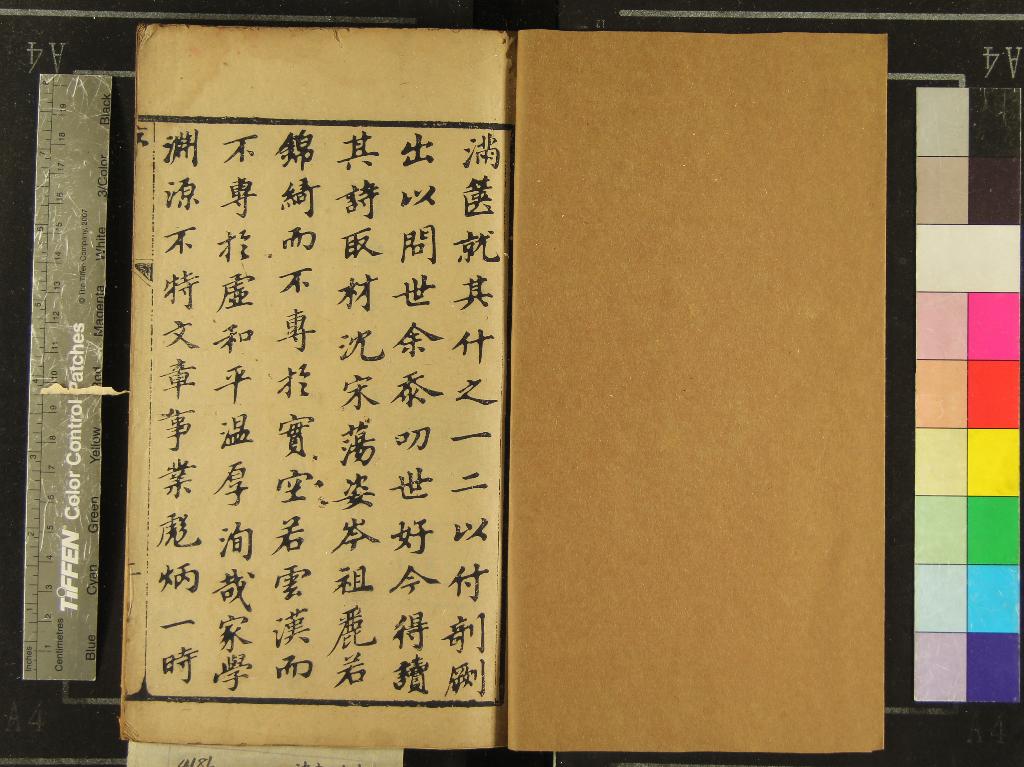 滿篋就其什之一二以付剞劂
出以問世余忝叨世好今得讀
其詩取材沈宋蕩姿岑祖麗若
錦綺而不專於實空若雲漢而
不專於虛和平温厚洵哉家學
淵源不特文章事業彪炳一時
Inches
Centimetres
TIFFEN Color Control Patches
© The Tiffen Company, 2007
Blue
Cyan
Green
Yellow
Red
Magenta
White
3/Color
Black
A4
A4
A4
A4